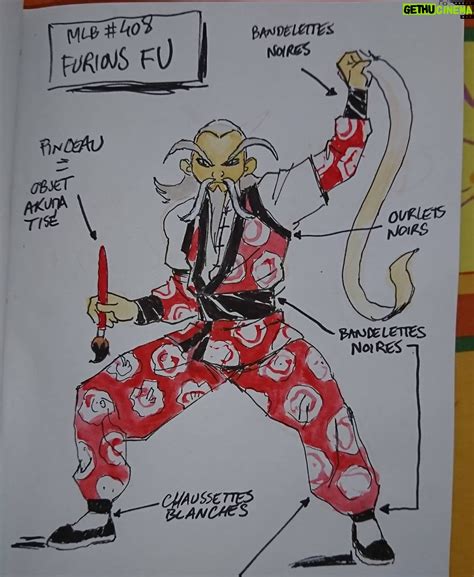 GETHUCINEMA
MLB #408
FURIOUS FU
BANDELETTES
NOIRES
PINCEAU
=
OBJET
AKUMA
TISE
OURLETS
NOIRS
BANDELETTES
NOIRES
CHAUSSETTES
BLANCHES